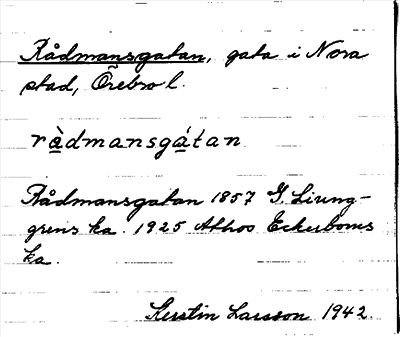 Rådmansgatan, gata i Nora
stad, Örebro l.
rå̀dmansgá̱tan
Rådmansgatan 1857 G. Ljung-
grens ka. 1925 Athos Eckerboms
ka.
Kerstin Larsson 1942.